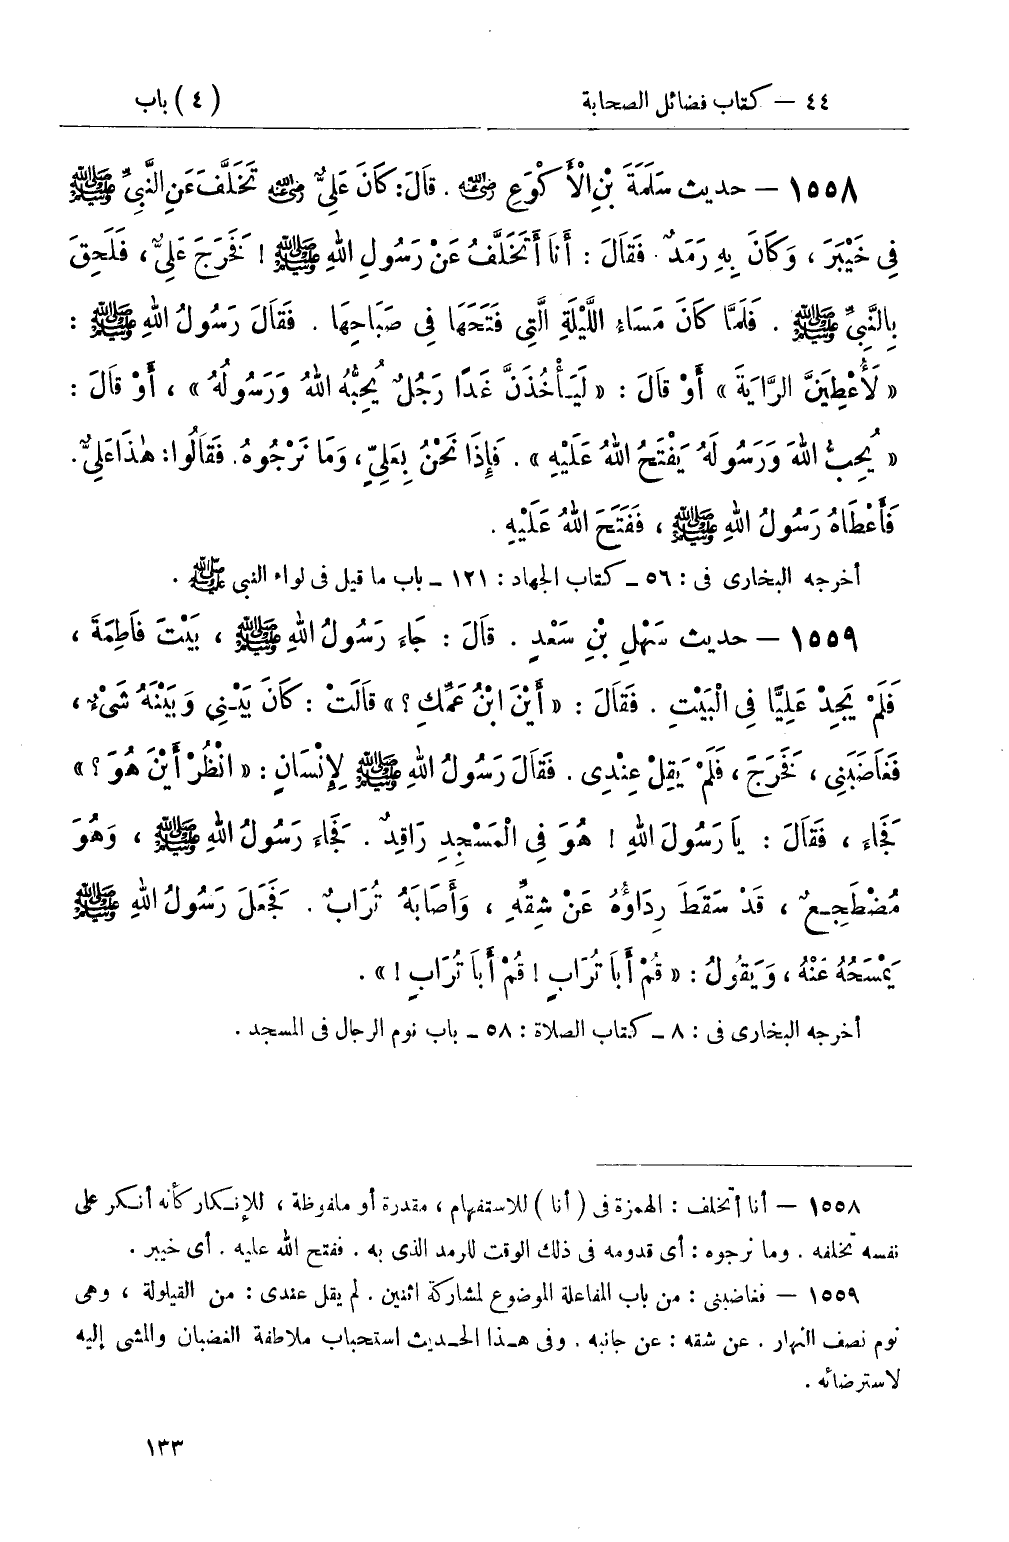 ٤٤ — كتاب فضائل الصحابة (٤) باب
١٥٥٨ — حديث سَلَمَةَ بْنِ الْأَكْوَعِ رضي الله عنه . قَالَ : كَانَ عَلِيٌّ رضي الله عنه تَخَلَّفَ عَنِ النَّبِيِّ ﷺ
فِى خَيْبَرَ ، وَكَانَ بِهِ رَمَدٌ . فَقَالَ : أَنَا أَتَخَلَّفُ عَنْ رَسُولِ اللهِ ﷺ ! فَخَرَجَ عَلِىٌّ ، فَلَحِقَ
بِالنَّبِىِّ ﷺ . فَلَمَّا كَانَ مَسَاءُ اللَّيْلَةِ الَّتِى فَتَحَهَا فِى صَبَاحِهَا . فَقَالَ رَسُولُ اللهِ ﷺ :
« لَأُعْطِيَنَّ الرَّايَةَ » أَوْ قَالَ : « لَيَأْخُذَنَّ غَدًا رَجُلٌ يُحِبُّهُ اللهُ وَرَسُولُهُ » ، أَوْ قَالَ :
« يُحِبُّ اللهَ وَرَسُولَهُ يَفْتَحُ اللهُ عَلَيْهِ » . فَإِذَا نَحْنُ بِعَلِيٍّ ، وَمَا نَرْجُوهُ . فَقَالُوا : هٰذَا عَلِىٌّ .
فَأَعْطَاهُ رَسُولُ اللهِ ﷺ ، فَفَتَحَ اللهُ عَلَيْهِ .
أخرجه البخارى فى : ٥٦ ـ كتاب الجهاد : ١٢١ ـ باب ما قيل فى لواء النبى ﷺ .
١٥٥٩ — حديث سَهْلِ بْنِ سَعْدٍ . قَالَ : جَاءَ رَسُولُ اللهِ ﷺ ، بَيْتَ فَاطِمَةَ ،
فَلَمْ يَجِدْ عَلِيًّا فِى الْبَيْتِ . فَقَالَ : « أَيْنَ ابْنُ عَمِّكِ ؟ » قَالَتْ : كَانَ بَيْنِى وَبَيْنَهُ شَىْءٌ ،
فَغَاضَبَنِى ، فَخَرَجَ ، فَلَمْ يَقِلْ عِنْدِى . فَقَالَ رَسُولُ اللهِ ﷺ لِإِنْسَانٍ : « انْظُرْ أَيْنَ هُوَ ؟ »
فَجَاءَ ، فَقَالَ : يَا رَسُولَ اللهِ ! هُوَ فِى الْمَسْجِدِ رَاقِدٌ . فَجَاءَ رَسُولُ اللهِ ﷺ ، وَهُوَ
مُضْطَجِعٌ ، قَدْ سَقَطَ رِدَاؤُهُ عَنْ شِقِّهِ ، وَأَصَابَهُ تُرَابٌ . فَجَعَلَ رَسُولُ اللهِ ﷺ
يَمْسَحُهُ عَنْهُ ، وَيَقُولُ : « قُمْ أَبَا تُرَابٍ ! قُمْ أَبَا تُرَابٍ ! » .
أخرجه البخارى فى : ٨ ـ كتاب الصلاة : ٥٨ ـ باب نوم الرجال فى المسجد .
١٥٥٨ — أنا أتخلف : الهمزة فى ( أنا ) للاستفهام ، مقدرة أو ملفوظة ، للإنكار كأنه أنكر على
نفسه تخلفه . وما نرجوه : أى قدومه فى ذلك الوقت للرمد الذى به . ففتح الله عليه . أى خيبر .
١٥٥٩ — فغاضبنى : من باب المفاعلة الموضوع لمشاركة اثنين . لم يقل عندى : من القيلولة ، وهى
نوم نصف النهار . عن شقه : عن جانبه . وفى هذا الحديث استحباب ملاطفة الغضبان والمشى إليه
لاسترضائه .
١٣٣